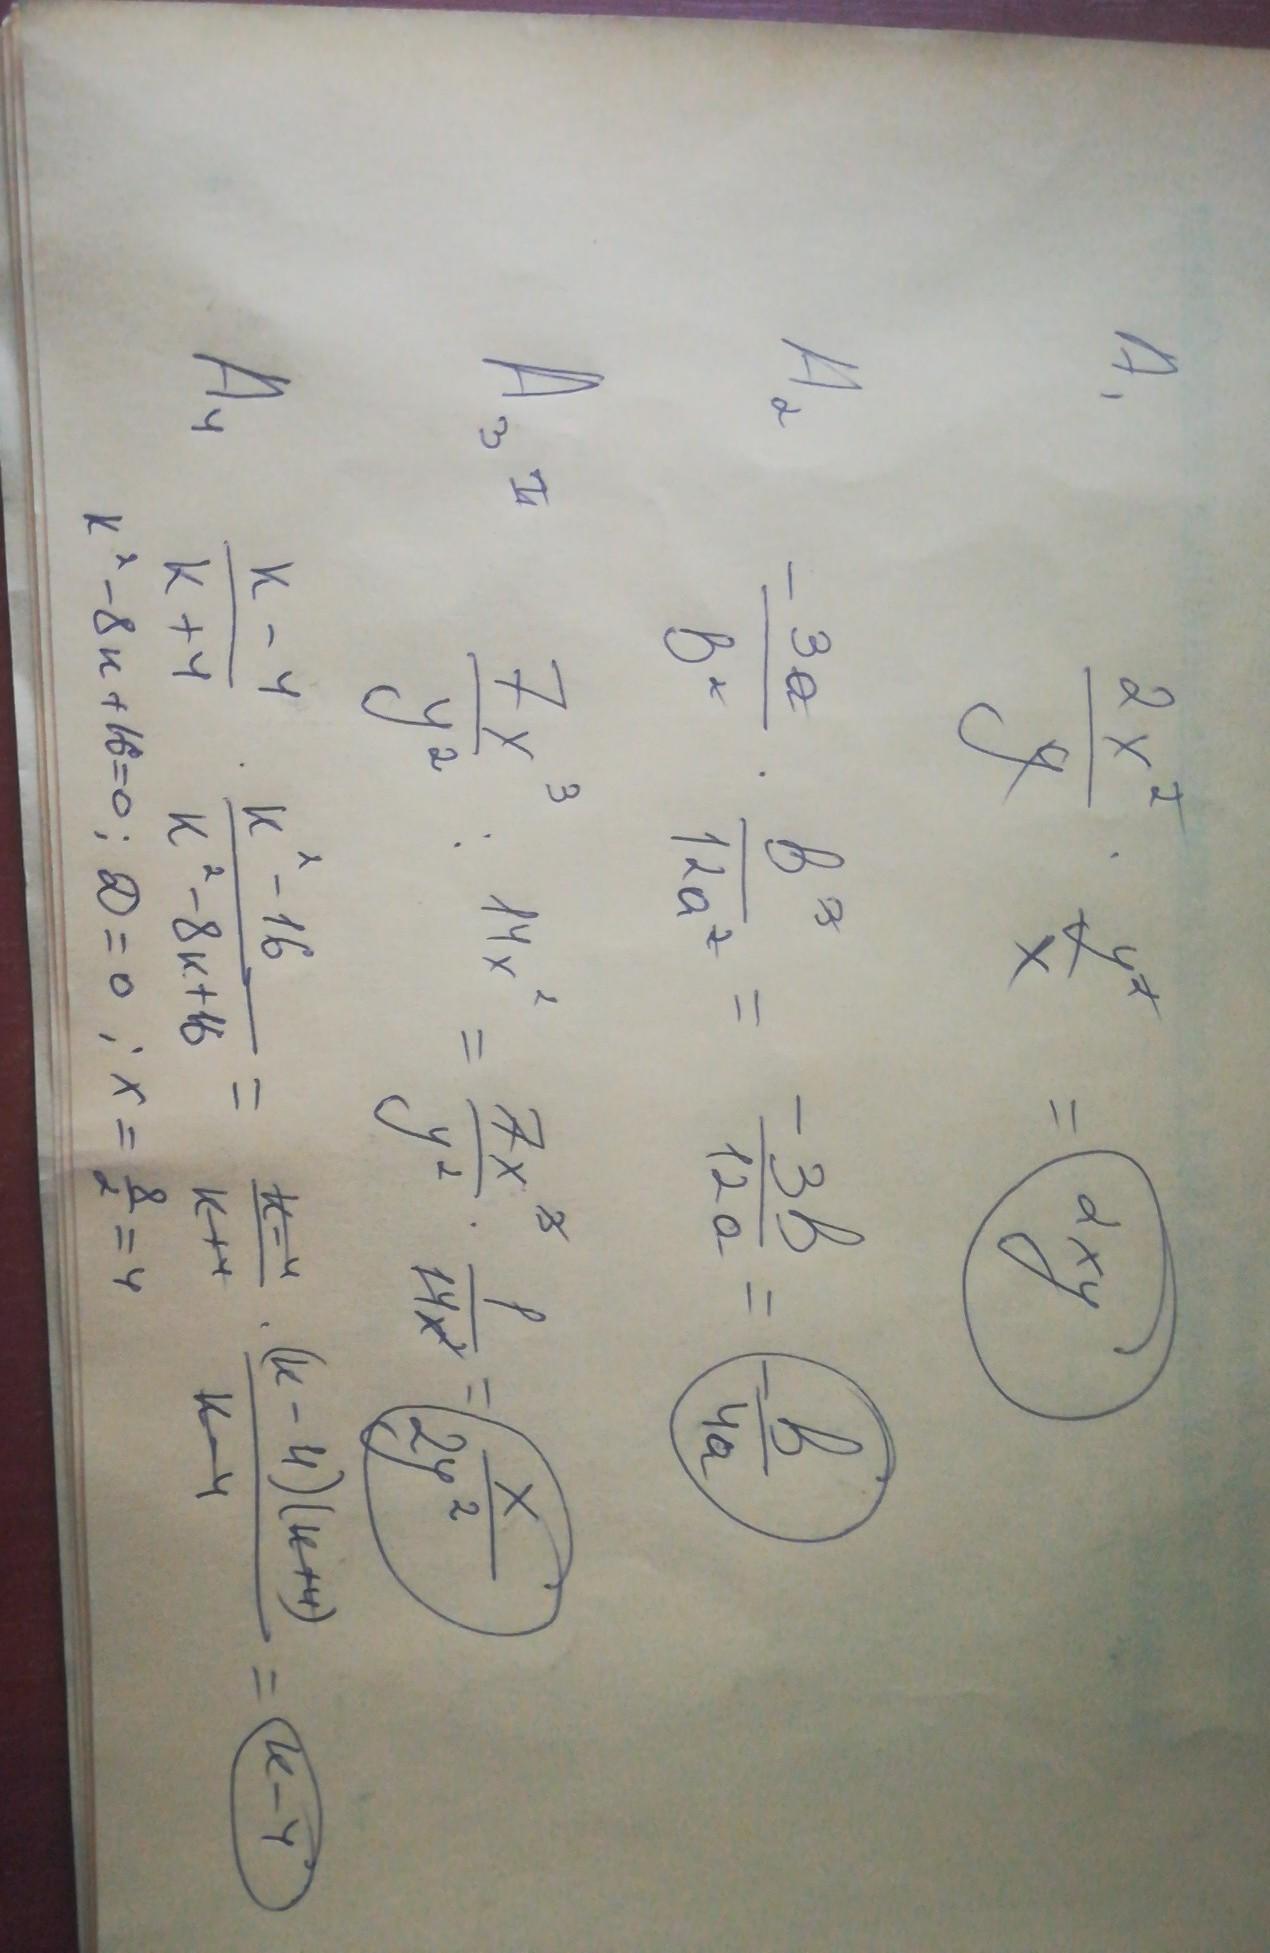 A₁ 2x²/y · y²/x = 2xy
A₂ -3a/b² · b³/12a² = -3b/12a = -b/4a
A₃ I 7x³/y² : 14x² = 7x³/y² · 1/14x² = x/2y²
A₄ k-4/k+4 · k²-16/k²-8k+16 = k-4/k+4 · (k-4)(k+4)/k-4 = k-4
k²-8k+16=0; D=0; x=8/2=4